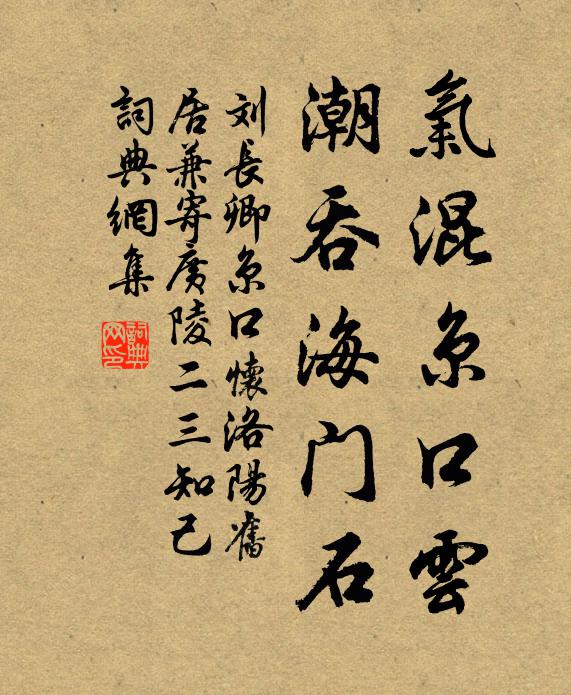 氣混京口雲
潮吞海门石
刘長卿京口懷洛陽舊
居兼寄廣陵二三知己
詞典網集
詞典网印